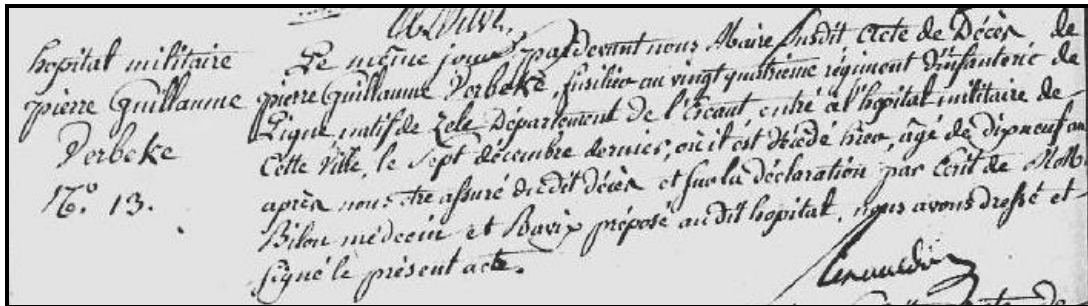 hopital militaire
pierre Guillaume
Verbeke
N.° 13.
Le même jour, pardevant nous Maire susdit Acte de Décès de
pierre Guillaume Verbeke, fusilier au vingt quatrième régiment d'infanterie de
Ligne natif de Zele Département de l'Escaut, entré à l'hopital militaire de
Cette Ville, le Sept décembre dernier, où il est décédé hier, âgé de dix neuf ans
après nous être assuré dudit décès et sur la déclaration par Ecrit de M.M.
Bilon médecin et Bavix préposé audit hopital, nous avons dressé et
signé le présent acte.